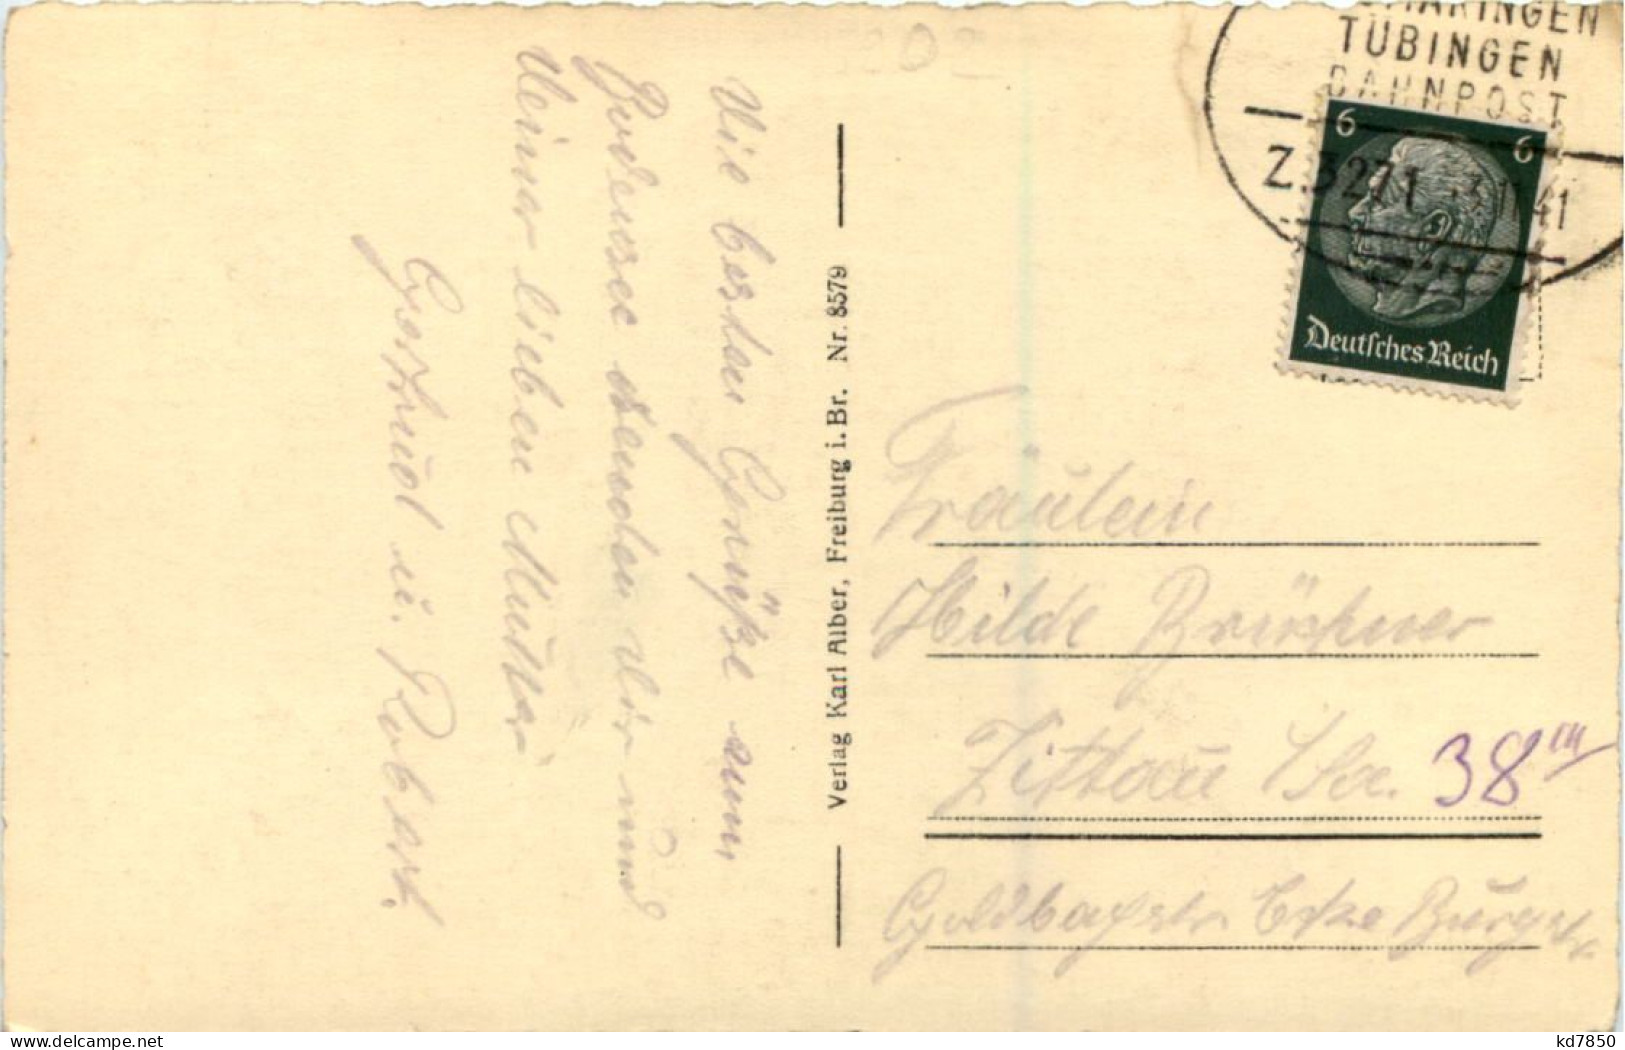 TÜBINGEN
BAHNPOST
Z.3271 41
6
6
Deutsches Reich
Die besten Grüße vom
Bodensee senden Dir und
Deiner lieben Mutter
Gertrud u. Robert.
Verlag Karl Alber, Freiburg i. Br. Nr. 8579
Fräulein
Hilde
Zittau i/Sa. 38
Goldbachstr. Ecke Burgstr.
kd7850